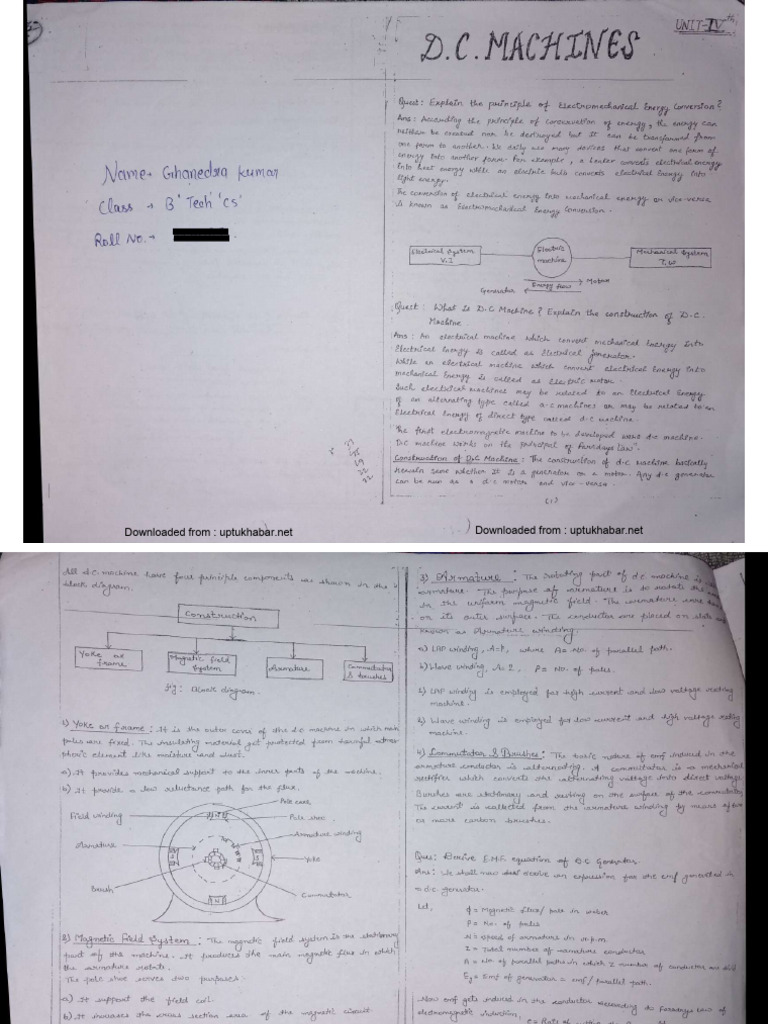 Name→ Ghanedra Kumar
Class → B' Tech 'CS'
Roll No.→
UNIT-IVth
D.C. MACHINES
Quest: Explain the principle of Electromechanical Energy Conversion?
Ans: According the principle of conservation of energy, the energy can
neither be created nor be destroyed but it can be transformed from
one form to another. We daily use many devices that convert one form of
energy into another form. For example, a heater converts electrical energy
into heat energy while an electric bulb converts electrical energy into
light energy.
The conversion of electrical energy into mechanical energy or vice-versa
is known as Electromechanical Energy Conversion.
Electrical System
V, I
Electric
machine
Mechanical System
T, ω
Generator
Energy flow
Motor
Quest: What is D.C Machine? Explain the construction of D.C.
Machine
Ans: An electrical machine which convert mechanical energy into
Electrical energy is called as Electrical generator.
While an electrical machine which convert electrical energy into
mechanical Energy is called as Electric motor.
Such electrical machines may be related to an Electrical Energy
of an alternating type called a.c machines or may be related to an
Electrical Energy of direct type called d.c machine.
The first electromagnetic machine to be developed were d.c machine.
D.C machine works on the principal of Faradays law".
Construction of D.C Machine: The construction of d.c machine basically
remain same whether it is a generator or a motor. Any d.c generator
can be run as a d.c motor and vice-versa.
(1)
Downloaded from : uptukhabar.net
Downloaded from : uptukhabar.net
All d.c. machine have four principle components as shown in the
block diagram.
Construction
Yoke or
frame
Magnetic field
System
Armature
Commutator
& brushes
fig: Block diagram.
1) Yoke or frame: It is the outer of the d.c machine in which main
poles are fixed. The insulating material get protected from harmful atmos-
pheric element like moisture and dust.
a). It provides mechanical support to the inner parts of the machine.
b). It provide a low reluctance path for the flux.
Pole core
Field winding
Pole shoe
Armature winding
Armature
Yoke
Brush
Commutator
2) Magnetic Field System: The magnetic field system is the stationary
part of the machine. It produces the main magnetic flux in which
the armature rotate.
The pole shoe serves two purposes:
a) It support the field coil.
b) It increases the cross section area of the magnetic circuit
3) Armature: The rotating part of d.c. machine is
armature. The purpose of armature is to rotate the
in the uniform magnetic field. The armature
on its outer surface. The conductor are placed on slots
known as Armature winding.
a) LAP winding, A=P, where A= No. of parallel path.
b) Wave winding, A=2, P= No. of poles.
1) LAP winding is employed for high current and low voltage rating
machine.
2) Wave winding is employed for low current and high voltage rating
machine.
4) Commutator & Brushes: The basic nature of emf induced in the
armature conductor is alternating. A commutator is a mechanical
rectifier which converts the alternating voltage into direct voltage.
Brushes are stationary and resting on the surface of the commutator
The current is collected from the armature winding by means of two
or more carbon brushes.
Ques: Derive E.M.F. equation of D.C Generator.
Ans: We shall now derive an expression for the emf generated in
a d.c generator.
Let,
φ = Magnetic flux/ pole in weber
P = No. of poles
N = speed of armature in r.p.m
Z = Total number of armature conductor
A = No of parallel paths in which Z number of conductor are
Eg = Emf of generator = emf/ parallel path.
Now emf gets induced in the conductor according to Faradays law of
electromagnetic induction,